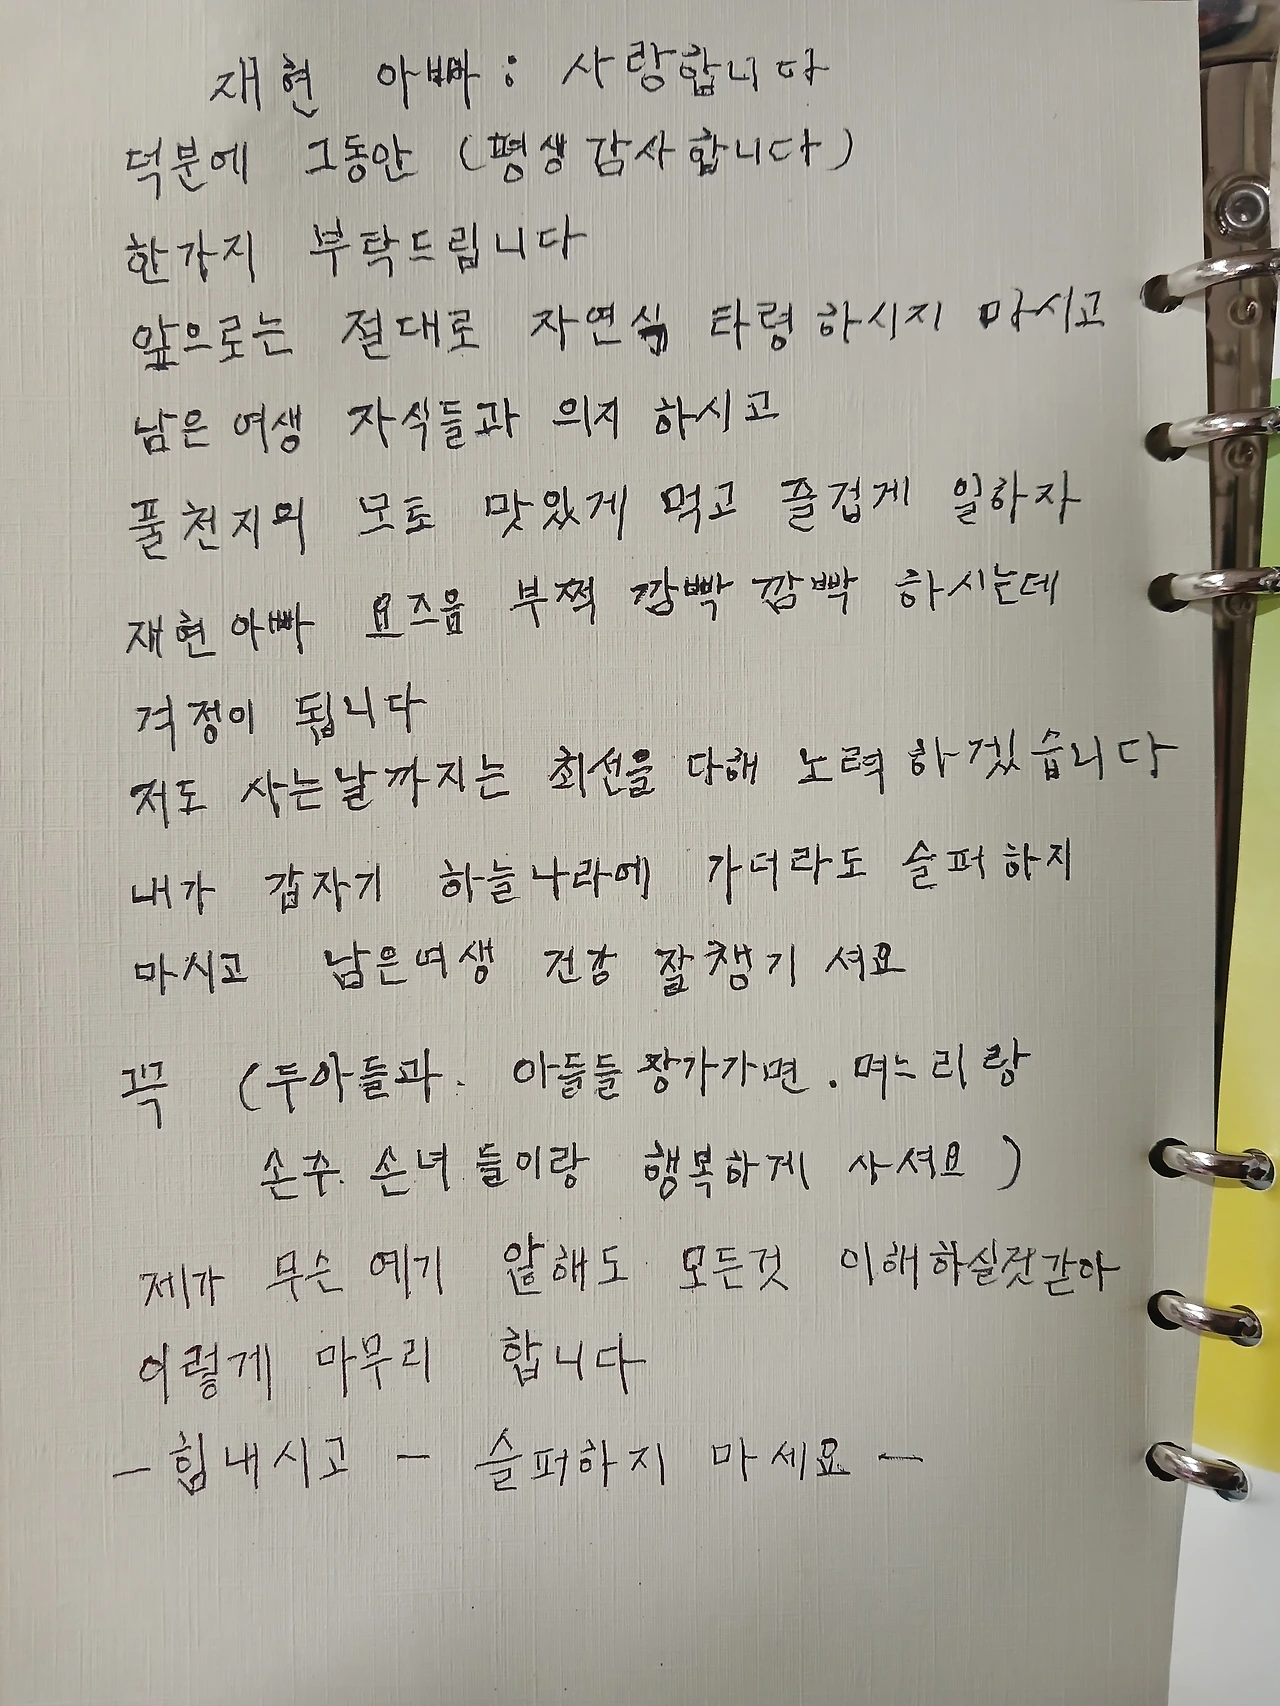 재현 아빠: 사랑합니다
덕분에 그동안 (평생감사합니다)
한가지 부탁드립니다
앞으로는 절대로 자연식 타령하시지 마시고
남은여생 자식들과 의지 하시고
풀천지의 모토 맛있게 먹고 즐겁게 일하자
재현아빠 요즈음 부쩍 깜빡깜빡 하시는데
걱정이 됩니다
저도 사는날까지는 최선을 다해 노력하겠습니다
내가 갑자기 하늘나라에 가더라도 슬퍼하지
마시고 남은여생 건강 잘챙기셔요
꼭 (두아들과. 아들들장가가면. 며느리랑
손주. 손녀들이랑 행복하게 사셔요)
제가 무슨 얘기 않해도 모든것 이해하실것같아
이렇게 마무리 합니다
- 힘내시고 - 슬퍼하지 마세요 -